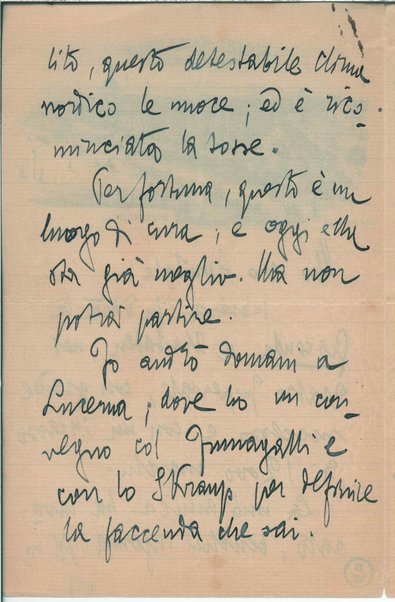 lito, questo detestabile clima
nordico le nuoce; ed è rico-
minciata la tosse.
Per fortuna, questo è un
luogo di cura; e oggi ella
sta già meglio. Ma non
potrà partire.
Io andrò domani a
Lucerna, dove ho un con-
vegno col Fumagalli e
con lo per definire
la faccenda che sai.